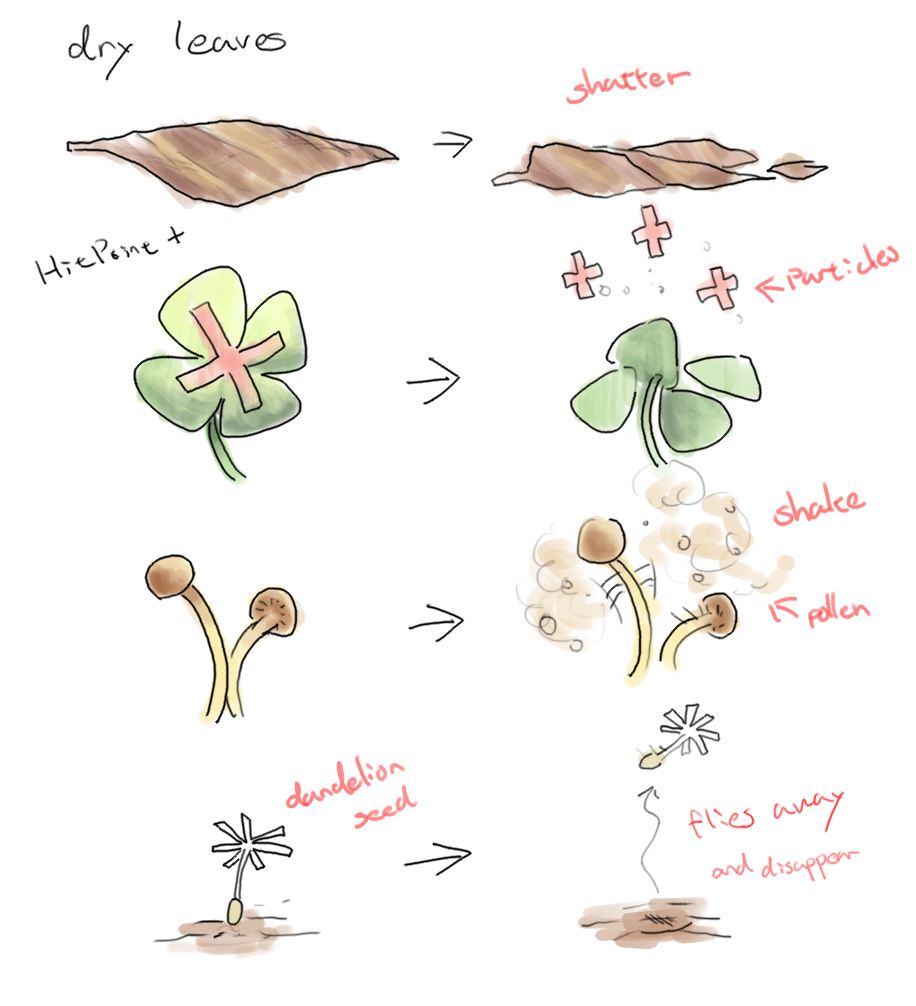 dry leaves
shatter
HitPoint +
Particles
shake
pollen
dandelion
seed
flies away
and disappear